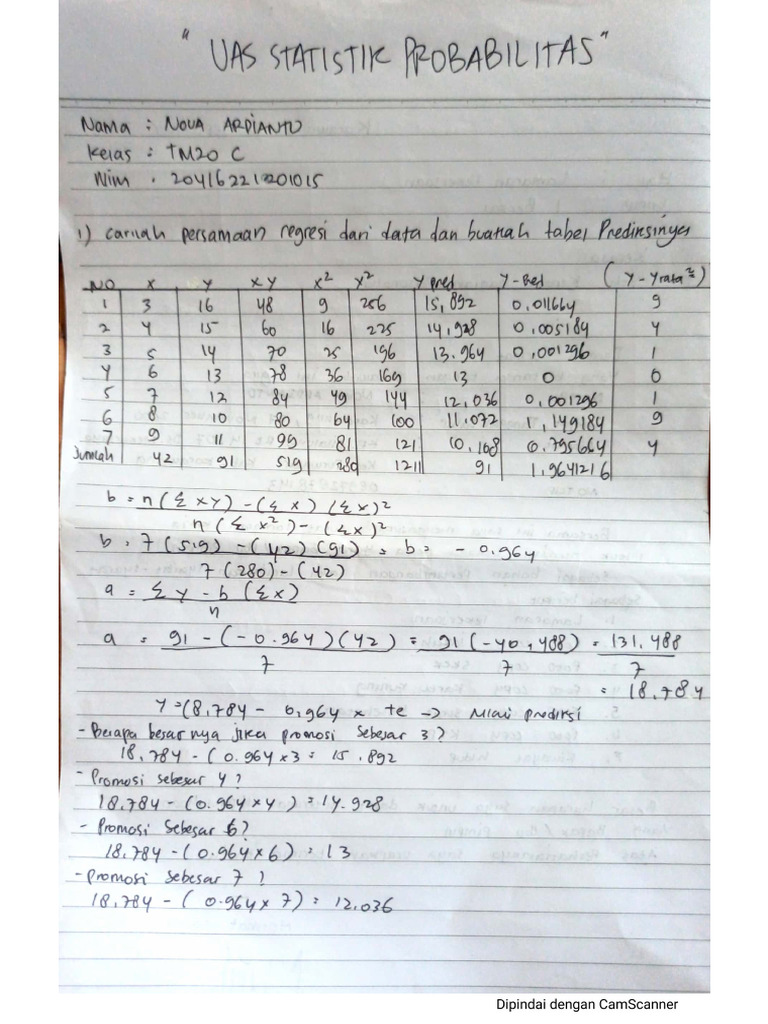 "UAS STATISTIK PROBABILITAS"
Nama : NOVA ARDIANTO
Kelas : TM20 C
Nim . 20416221201015
1) carilah persamaan regresi dari data dan buatlah tabel Prediksinya
NO x y xy x² y² y pred y-Pred (y-yrata²)
1 3 16 48 9 256 15,892 0.011664 9
2 4 15 60 16 225 14,928 0.005184 4
3 5 14 70 25 196 13.964 0.001296 1
4 6 13 78 36 169 13 0 0
5 7 12 84 49 144 12,036 0,001296 1
6 8 10 80 64 100 11.072 1,149184 9
7 9 11 99 81 121 10,108 0.795664 4
Jumlah 42 91 519 280 1211 91 1.9641216
b = n(Σxy) - (Σx) (Σx)²
n (Σ x²) - (Σx)²
b = 7(519) - (42)(91) = b = - 0.964
7(280) - (42)
a = Σy - b (Σx)
n
a = 91 - (-0.964)(42) = 91(-40,488) = 131.488
7 7 7
= 18.784
Y = 18,784 - 0,964 x te → Nilai prediksi
- Berapa besarnya jika promosi sebesar 3?
18.784 - (0.964x3 = 15.892
- Promosi sebesar 4?
18.784 - (0.964x4) = 14.928
- Promosi sebesar 6?
18.784 - (0.964x6) = 13
- Promosi sebesar 7?
18.784 - (0.964x7) = 12.036
Dipindai dengan CamScanner